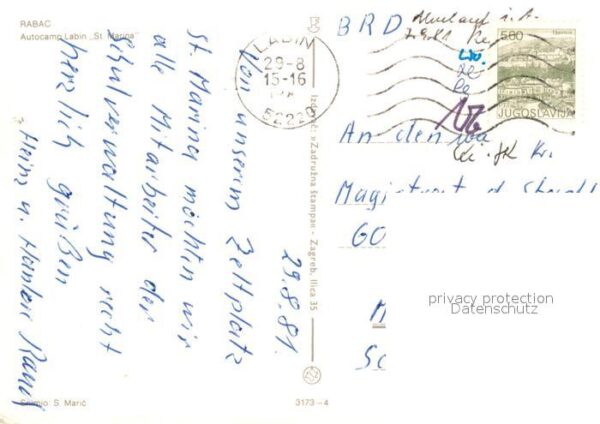 RABAC
Autocamp Labin „St. Marina"
29.8.81.
Von unserem Zeltplatz
St. Marina möchten wir
alle Mitarbeiter der
Schulverwaltung recht
herzlich grüßen
Heinz u.
Snimio: S. Marić
3173-4
Izdavač: »Zadružna štampa« - Zagreb, Ilica 35
LABIN
29-8
15-16
52220
BRD
5.00
JUGOSLAVIJA
An den
Magistrat d. Stadt
60
privacy protection
Datenschutz